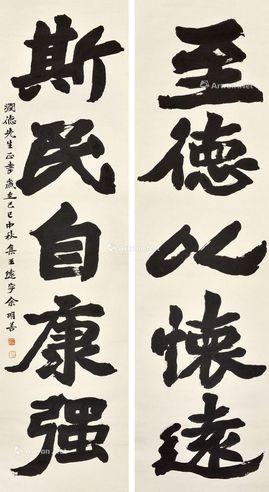 至德以懷遠
斯民自康强
潤德先生正書歲在己巳中秋集王遠字余明善